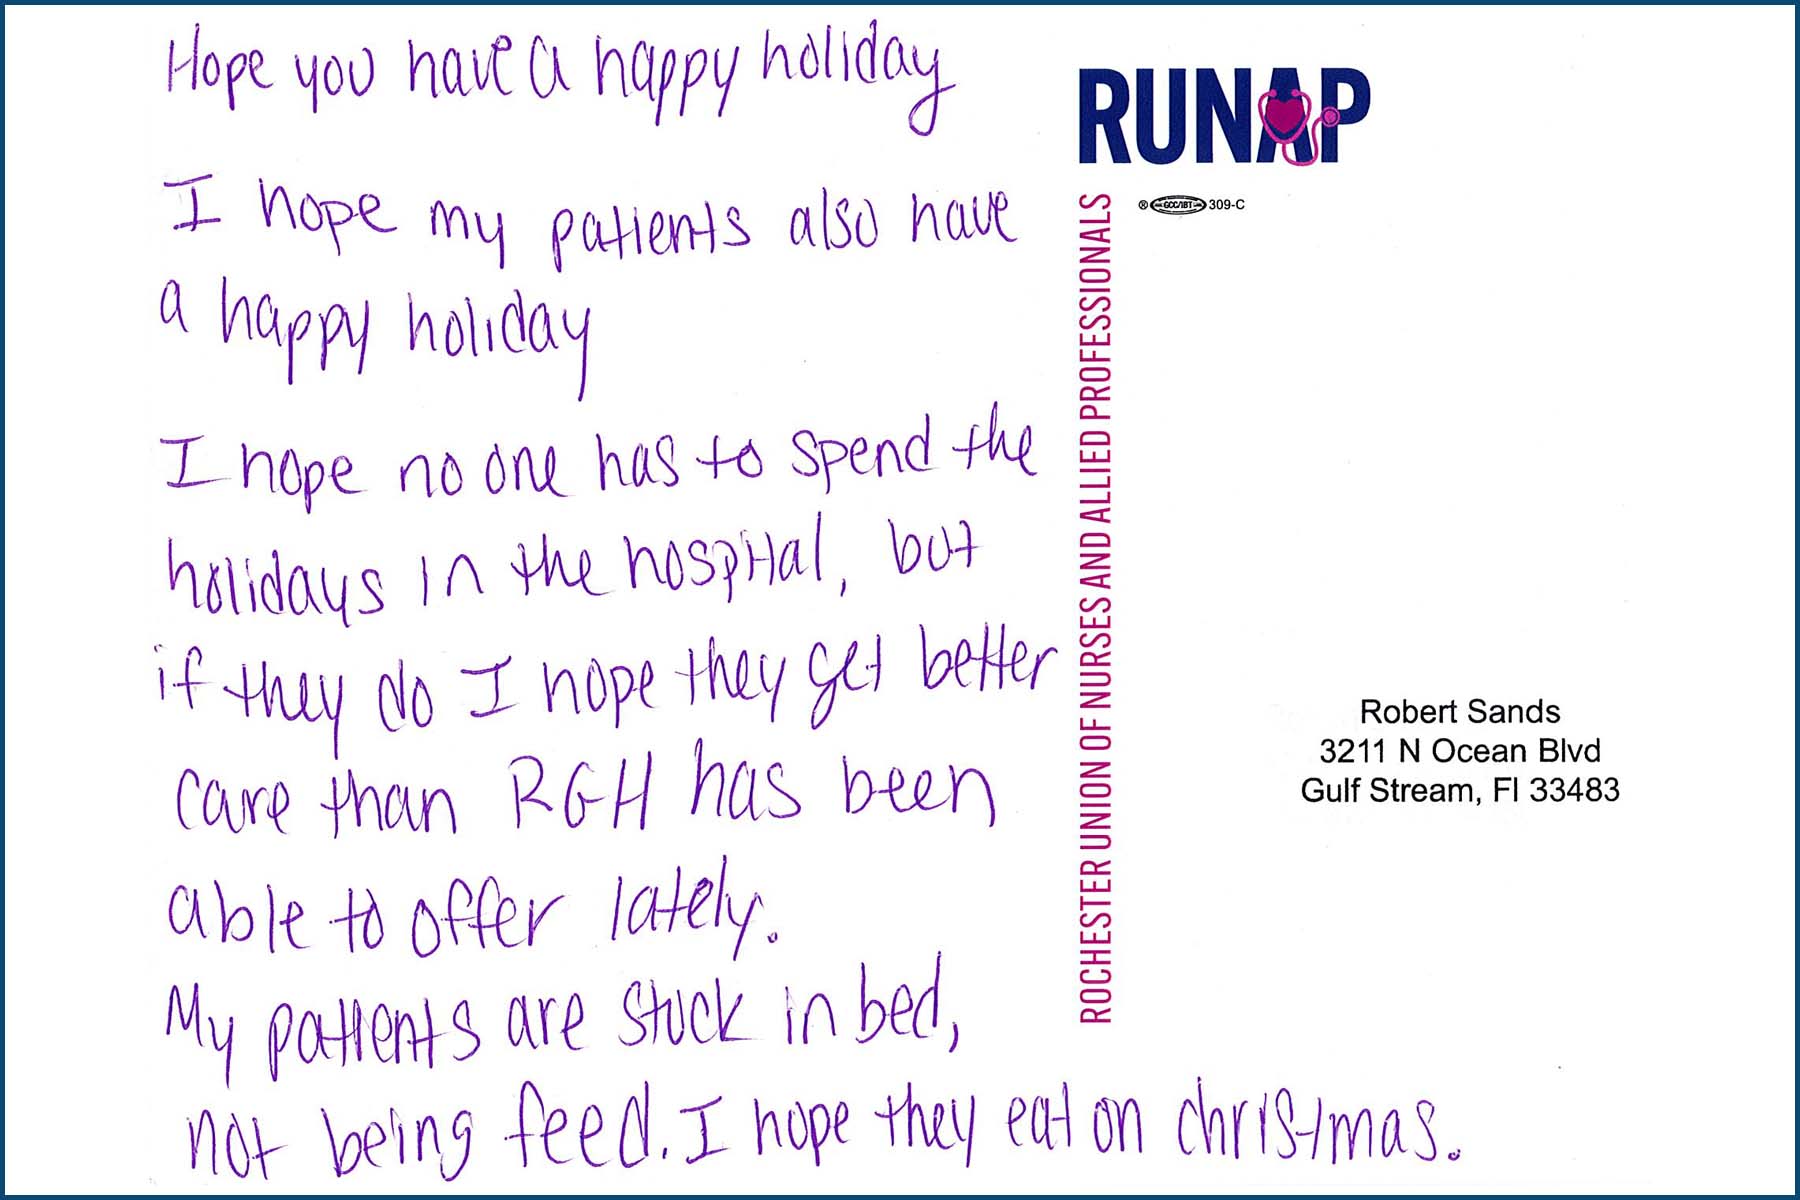 Hope you have a happy holiday
I hope my patients also have
a happy holiday
I hope no one has to spend the
holidays in the hospital, but
if they do I hope they get better
care than RGH has been
able to offer lately.
My patients are stuck in bed,
not being feed. I hope they eat on christmas.
RUNAP
® GCC/IBT 309-C
ROCHESTER UNION OF NURSES AND ALLIED PROFESSIONALS
Robert Sands
3211 N Ocean Blvd
Gulf Stream, Fl 33483